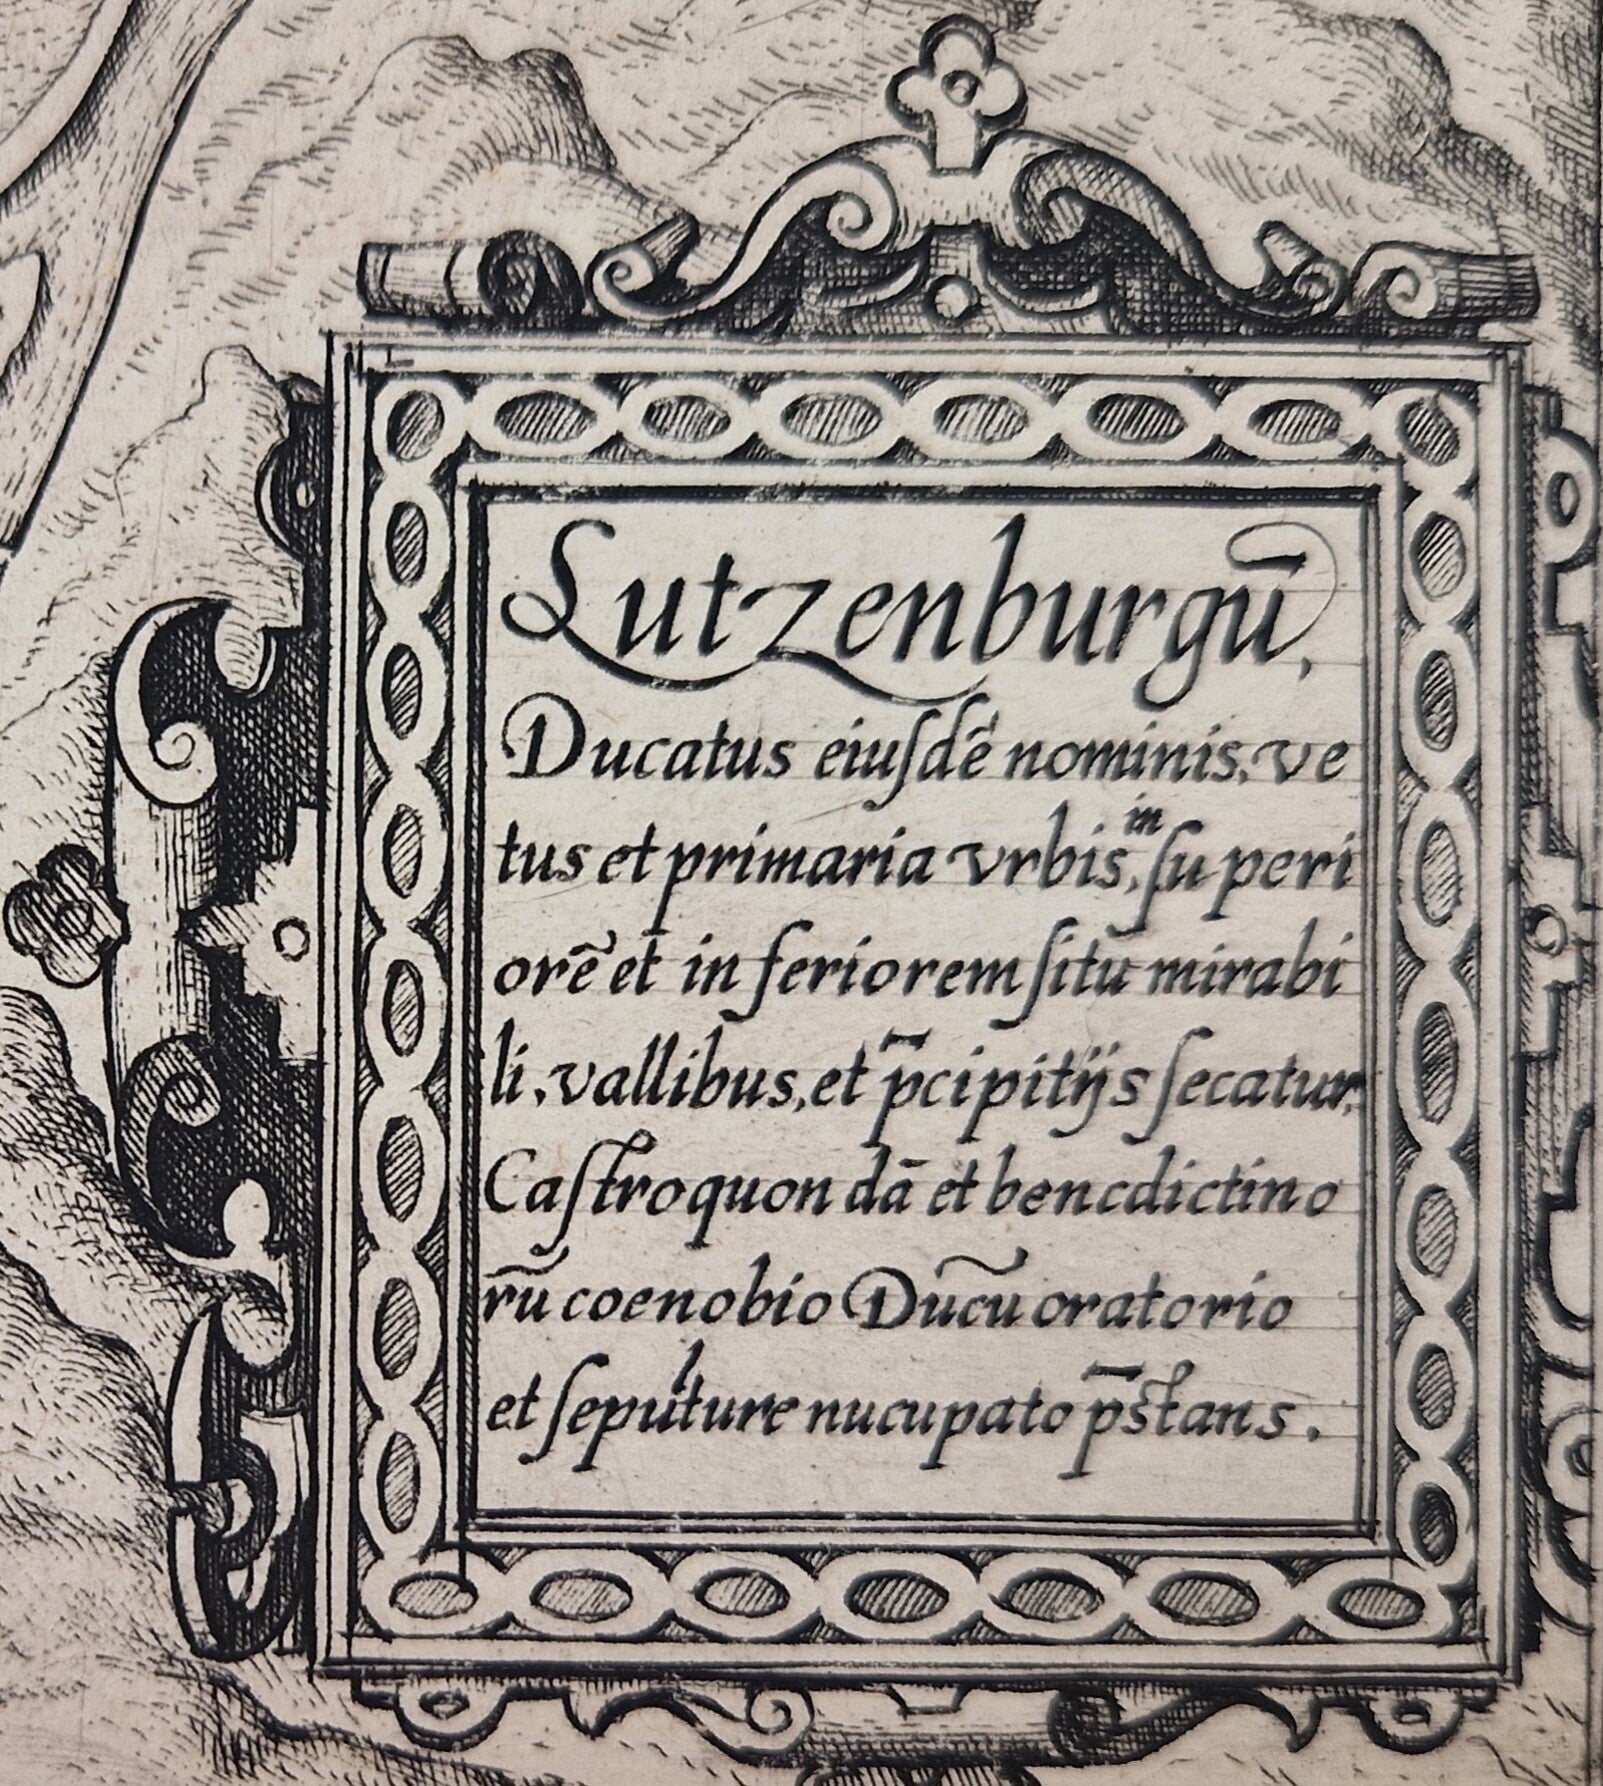 Lutzenburgū,
Ducatus eiuſdē nominis, ve
tus et primaria vrbis, in ſuperi
orē et inferiorem ſitū mirabi
li, vallibus, et p̄cipitijs ſecatur,
Caſtro quondā et bencdictino
rū coenobio Ducū oratorio
et ſepulture nucupato p̄stans.